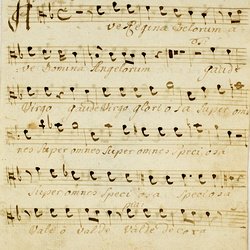 ve Regina Celorum a
ve Domina Angelorum gaude
Virgo gaude Virgo gloriosa Super om
nes Super omnes Super omnes Speciosa
Super omnes Speciosa Speciosa
Vale o valde Valde decora